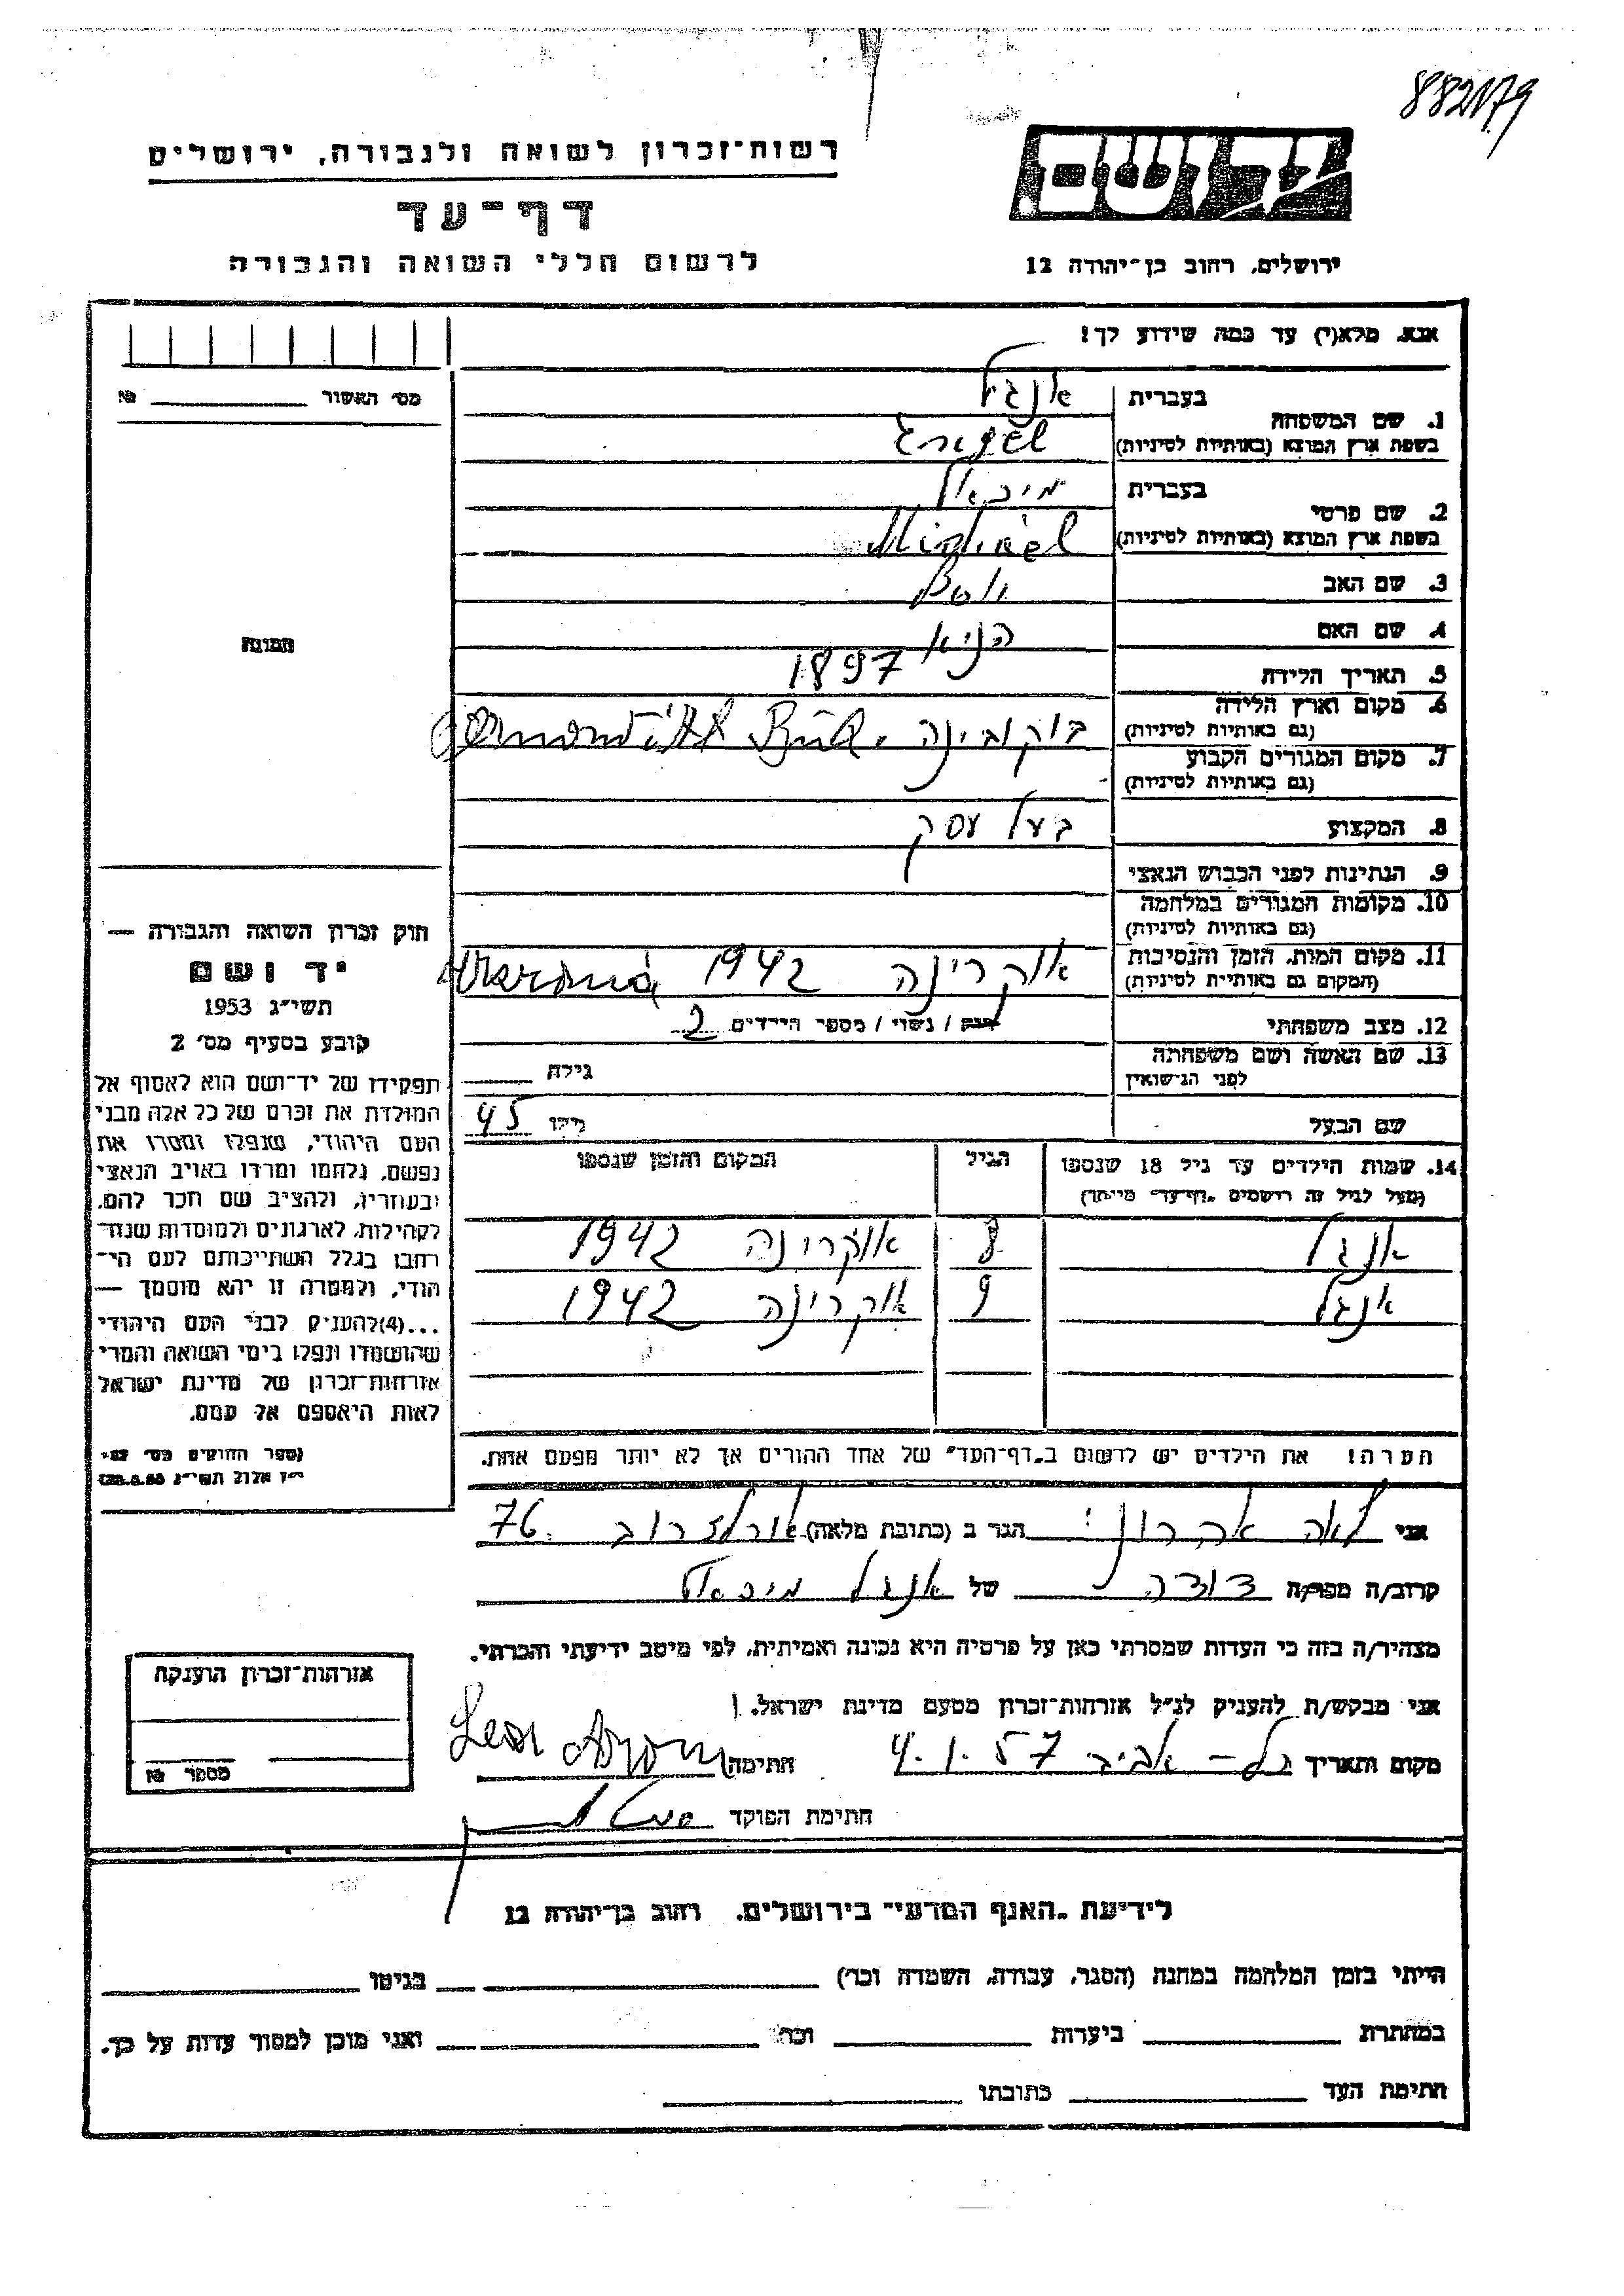 882179
רשות־זכרון לשואה ולגבורה, ירושלים
יד ושם
דף־עד
לרשום חללי השואה והגבורה
ירושלים, רחוב בן־יהודה 12
אנא, מלא(י) עד כמה שידוע לך!
מס׳ האשור № 
1. שם המשפחה
בעברית אנגל
בשפת ארץ המוצא (באותיות לטיניות) Engel
2. שם פרטי
בעברית מיכאל
בשפת ארץ המוצא (באותיות לטיניות) Michael
3. שם האב
4. שם האם
5. תאריך הלידה 1897
6. מקום וארץ הלידה
(גם באותיות לטיניות) בוקובינה
7. מקום המגורים הקבוע
(גם באותיות לטיניות)
8. המקצוע בעל עסק
9. הנתינות לפני הכבוש הנאצי
10. מקומות המגורים במלחמה
(גם באותיות לטיניות)
11. מקום המות, הזמן והנסיבות
(המקום גם באותיות לטיניות) אוקרינה 1942
12. מצב משפחתי רווק / נשוי / מספר הילדים 2
13. שם האשה ושם משפחתה
לפני הנישואין גילה
שם הבעל גילו 45
14. שמות הילדים עד גיל 18 שנספו
(מעל לגיל זה רושמים „דף־עד״ מיוחד)
הגיל
המקום והזמן שנספו
אנגל 8 אוקרינה 1942
אנגל 9 אוקרינה 1942
הערה! את הילדים יש לרשום ב„דף־העד״ של אחד ההורים אך לא יותר מפעם אחת.
תמונה
חוק זכרון השואה והגבורה —
יד ושם
תשי״ג 1953
קובע בסעיף מס׳ 2
תפקידו של יד־ושם הוא לאסוף אל
המולדת את זכרם של כל אלה מבני
העם היהודי, שנפלו ומסרו את
נפשם, נלחמו ומרדו באויב הנאצי
ובעוזריו, ולהציב שם וזכר להם,
לקהילות, לארגונים ולמוסדות שנח־
רבו בגלל השתייכותם לעם הי־
הודי, ולמטרה זו יהא מוסמך —
...(4)להעניק לבני העם היהודי
שהושמדו ונפלו בימי השואה והמרי
אזרחות־זכרון של מדינת ישראל
לאות היאספם אל עמם.
אני לאה אהרוני הגר ב (כתובת מלאה) ארלוזרוב 76
קרוב/ה מפר/ה דודה של אנגל מיכאל
מצהיר/ה בזה כי העדות שמסרתי כאן על פרטיה היא נכונה ואמיתית, לפי מיטב ידיעתי והכרתי.
אני מבקש/ת להעניק לנ״ל אזרחות־זכרון מטעם מדינת ישראל.
מקום ותאריך תל־אביב 4.1.57 חתימה
חתימת הפוקד
אזרחות־זכרון הוענקה
מספר №
לידיעת „האגף המדעי״ בירושלים, רחוב בן־יהודה 12
הייתי בזמן המלחמה במחנה (הסגר, עבודה, השמדה וכו׳) בגיטו
במחתרת ביערות וכו׳ ואני מוכן למסור עדות על כך.
חתימת העד כתובתו